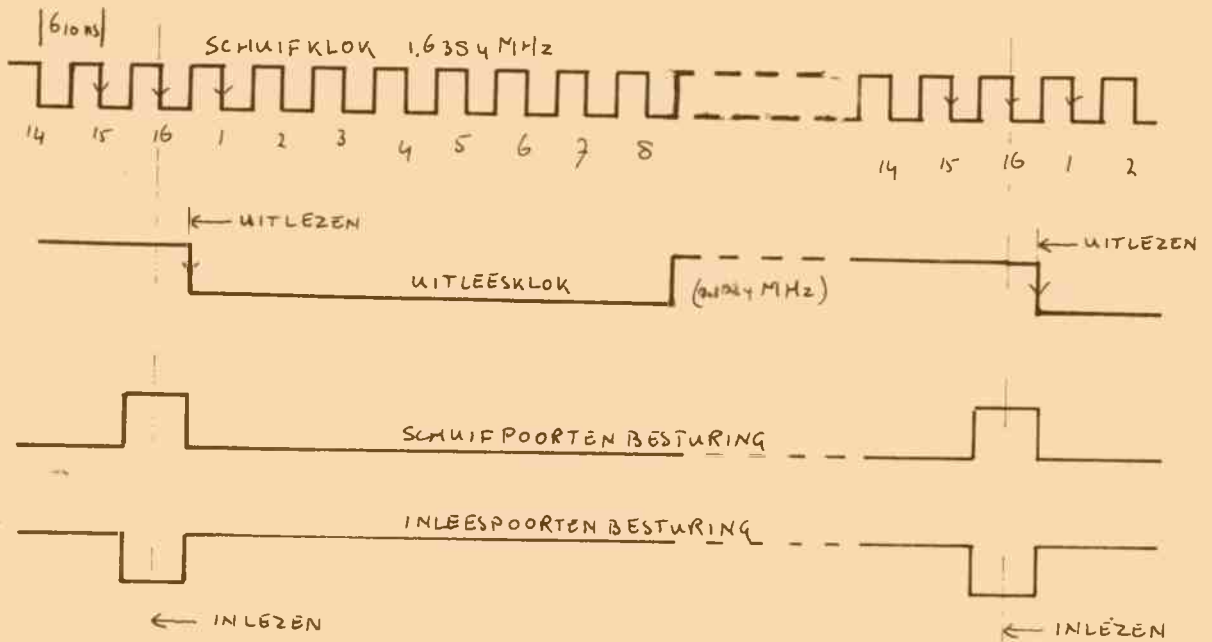 610 ns
SCHUIFKLOK 1.6384 MHz
14 15 16 1 2 3 4 5 6 7 8 14 15 16 1 2
← UITLEZEN ← UITLEZEN
UITLEESKLOK ( MHz)
SCHUIFPOORTEN BESTURING
INLEESPOORTEN BESTURING
← INLEZEN ← INLEZEN